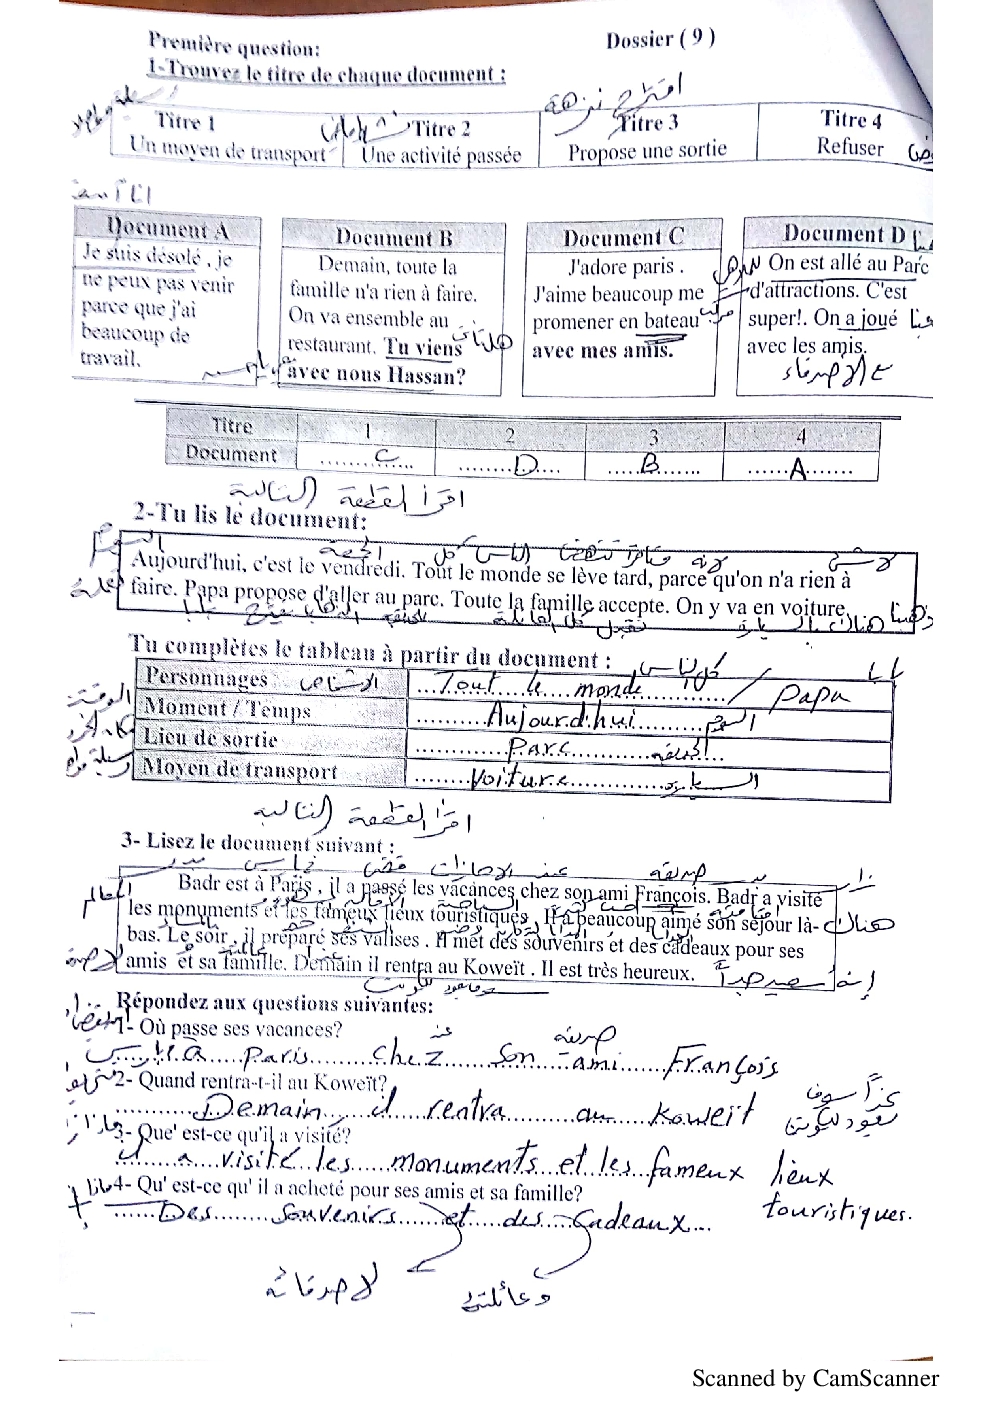 Première question:
Dossier ( 9 )
1-Trouvez le titre de chaque document :
اقتراح نزهة
Titre 1
Titre 2
Titre 3
Titre 4
Un moyen de transport
Une activité passée
Propose une sortie
Refuser
انا آسف
Document A
Je suis désolé , je
ne peux pas venir
parce que j'ai
beaucoup de
travail.
Document B
Demain, toute la
famille n'a rien à faire.
On va ensemble au
restaurant. Tu viens
avec nous Hassan?
هل تأتي
Document C
J'adore paris .
J'aime beaucoup me
promener en bateau
avec mes amis.
مركب
Document D
On est allé au Parc
d'attractions. C'est
super!. On a joué
avec les amis.
مع الأصدقاء
Titre 1 2 3 4
Document C D B A
اقرأ القطعة التالية
2-Tu lis le document:
اليوم الجمعة كل الناس لأنه لا شئ
Aujourd'hui, c'est le vendredi. Tout le monde se lève tard, parce qu'on n'a rien à
faire. Papa propose d'aller au parc. Toute la famille accepte. On y va en voiture
تقبل كل العائلة هناك بالسيارة
Tu complètes le tableau à partir du document :
Personnages الاشخاص Tout le monde / papa كل الناس بابا
Moment / Temps Aujourd'hui اليوم الوقت
Lieu de sortie Parc الحديقة
Moyen de transport Voiture السيارة
اقرأ القطعة التالية
3- Lisez le document suivant :
Badr est à Paris , il a passé les vacances chez son ami François. Badr a visité
les monuments et les fameux lieux touristiques . Il a beaucoup aimé son séjour là-
bas. Le soir , il préparé ses valises . Il met des souvenirs et des cadeaux pour ses
amis et sa famille. Demain il rentra au Koweït . Il est très heureux.
إنه سعيد جداً
Répondez aux questions suivantes:
1- Où passe ses vacances?
عند صديقه
à Paris chez son ami François
2- Quand rentra-t-il au Koweït?
Demain il rentra au Koweït
غداً سوف
يعود للكويت
3- Que' est-ce qu'il a visité?
il a visité les monuments et les fameux lieux
touristiques.
4- Qu' est-ce qu' il a acheté pour ses amis et sa famille?
Des souvenirs et des cadeaux
لاصدقائه
وعائلته
Scanned by CamScanner